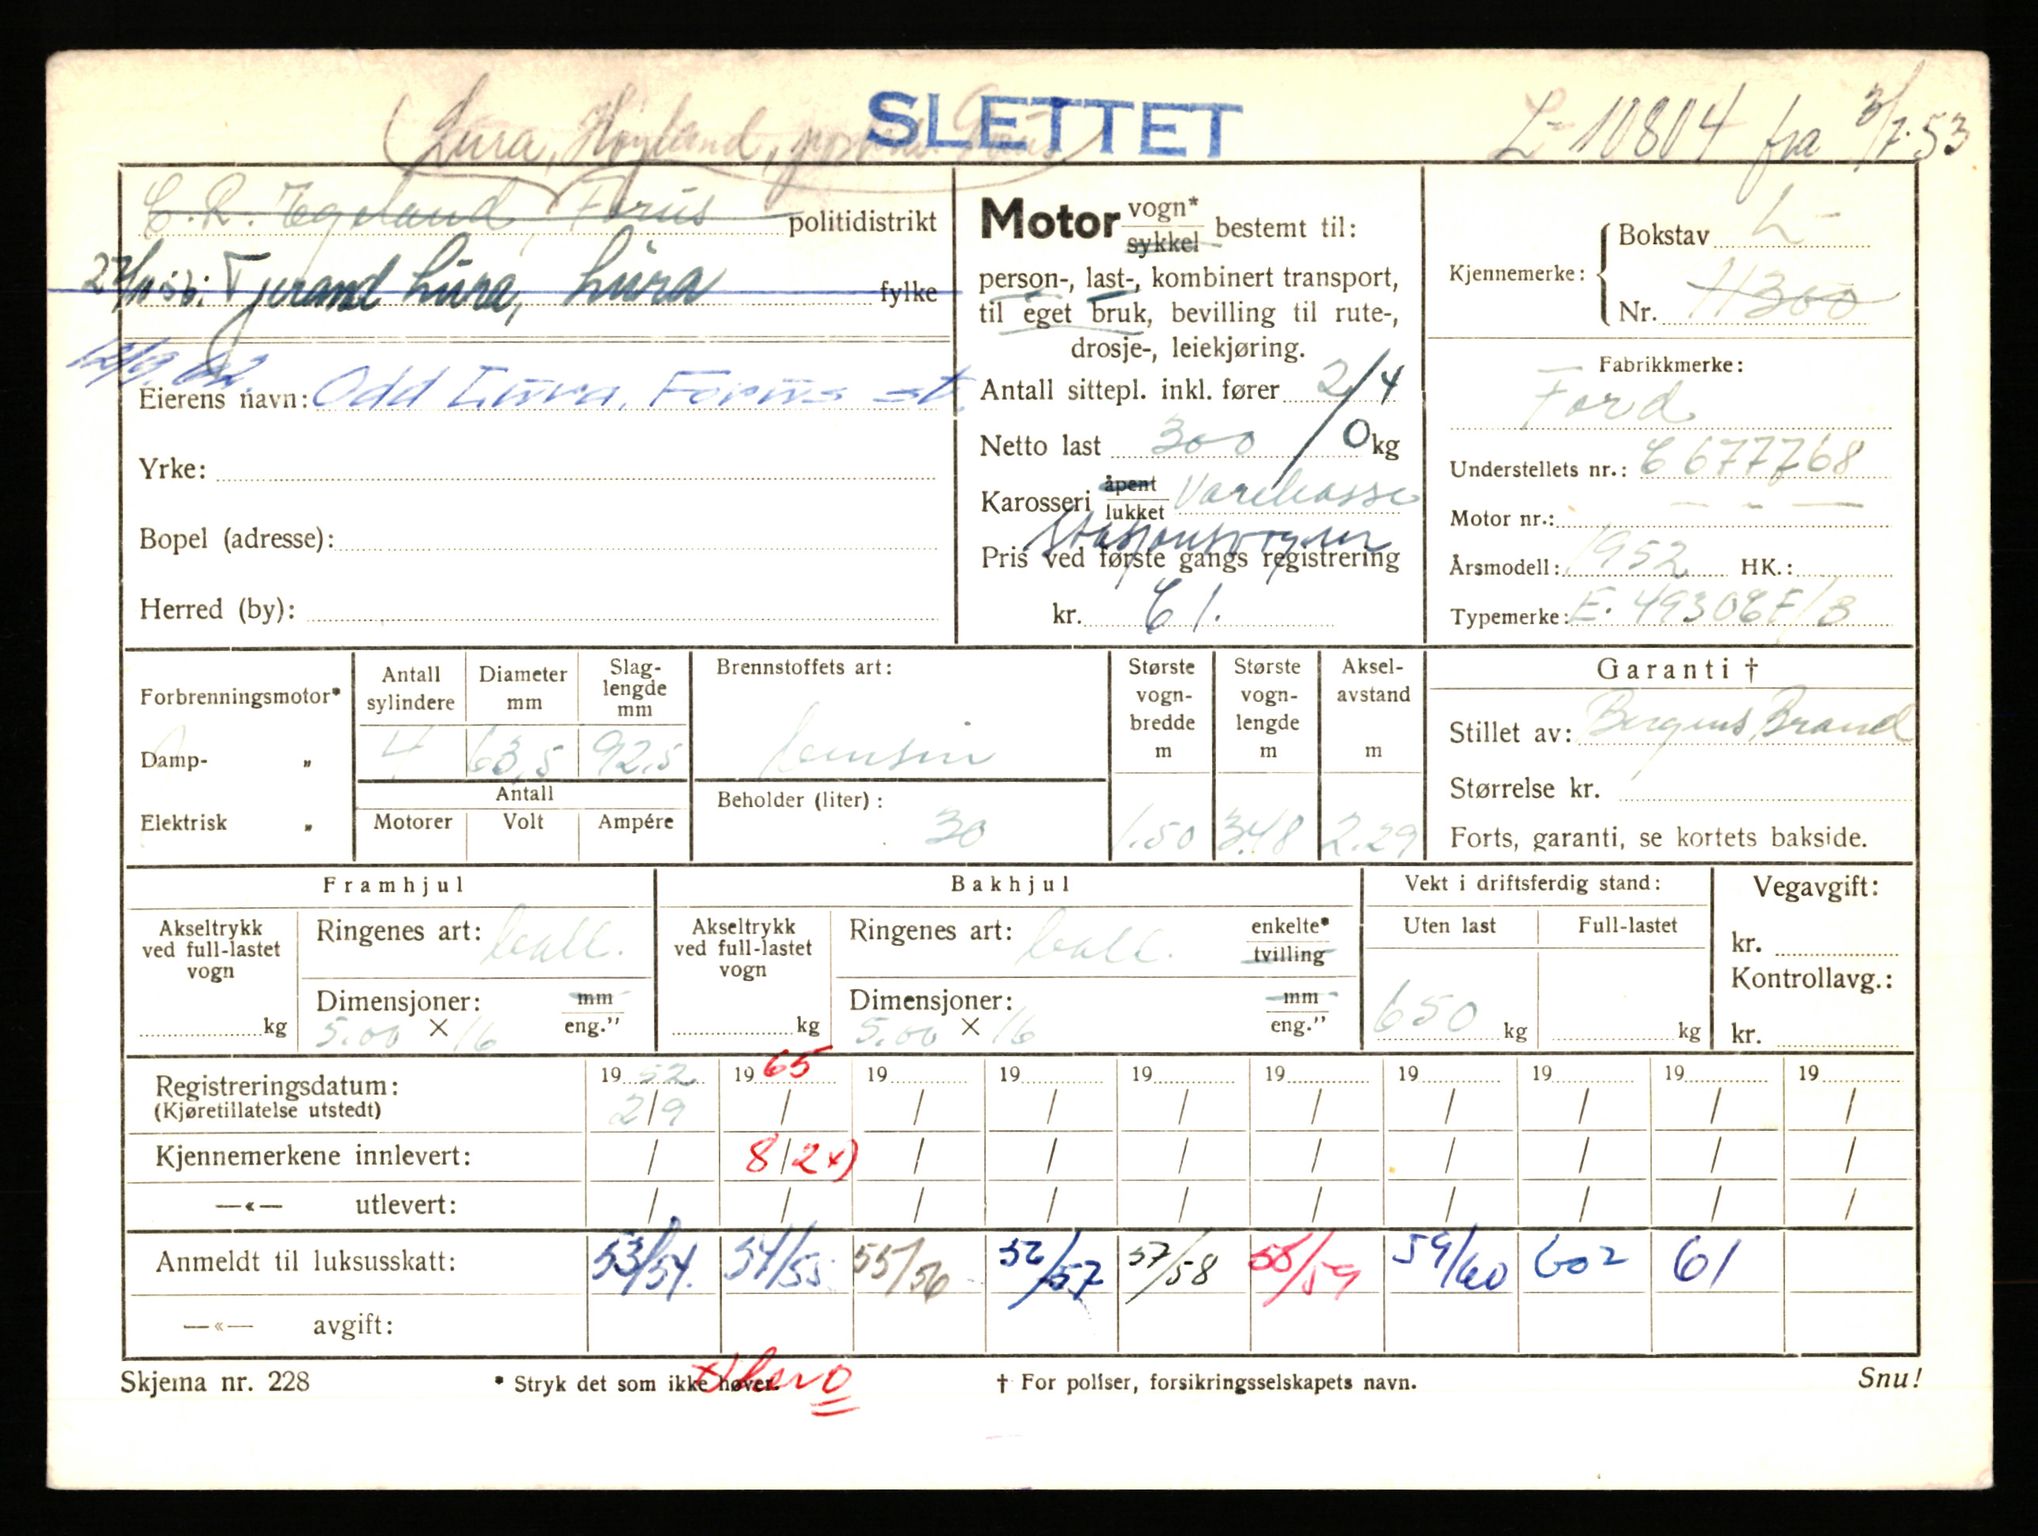 SLETTET
(Lura, Høyland,
L-10804 fra 3/7.53
E. R. Egeland, Forus politidistrikt
27/11-56: Tjerand Lura, Lura fylke
12/9.62.
Eierens navn: Odd Lura, Forus st.
Yrke:
Bopel (adresse):
Herred (by):
Motor vogn* sykkel bestemt til:
person-, last-, kombinert transport,
til eget bruk, bevilling til rute-,
drosje-, leiekjøring.
Antall sittepl. inkl. fører 2/4
Netto last 300 / 0 kg
Karosseri åpent lukket Varekasse
Stasjonsvogn
Pris ved første gangs registrering
kr. 61.
Kjennemerke: Bokstav L-
Nr. 11300
Fabrikkmerke:
Ford
Understellets nr.: C 677768
Motor nr.: — - —
Årsmodell: 1952 HK.:
Typemerke: E. 4930CF/3
Forbrenningsmotor*
Damp- "
Elektrisk "
Antall sylindere
Diameter mm
Slag-lengde mm
4 63,5 92,5
Antall
Motorer Volt Ampére
Brennstoffets art:
bensin
Beholder (liter):
30
Største vogn-bredde m
Største vogn-lengde m
Aksel-avstand m
1.50 3.48 2.29
Garanti †
Stillet av: Bergens Brand
Størrelse kr.
Forts, garanti, se kortets bakside.
Framhjul
Akseltrykk ved full-lastet vogn
kg
Ringenes art: ball.
Dimensjoner: mm
5.00 × 16 eng."
Bakhjul
Akseltrykk ved full-lastet vogn
kg
Ringenes art: ball. enkelte* tvilling
Dimensjoner: mm
5.00 × 16 eng."
Vekt i driftsferdig stand:
Uten last Full-lastet
650 kg kg
Vegavgift:
kr.
Kontrollavg.:
kr.
Registreringsdatum: 19 52 19 65 19 19 19 19 19 19 19 19
(Kjøretillatelse utstedt) 2/9 / / / / / / / / /
Kjennemerkene innlevert: / 8/2 x) / / / / / / / /
—«— utlevert: / / / / / / / / / /
Anmeldt til luksusskatt: 53/54. 54/55 55/56 56/57 57/58 58/59 59/60 602 61
—«— avgift:
Skjema nr. 228
* Stryk det som ikke høver.
† For poliser, forsikringsselskapets navn.
Snu!